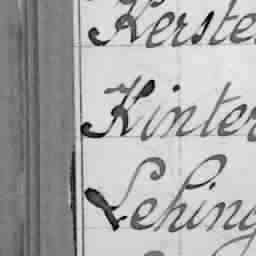 Kerste
Kinter
Lehing